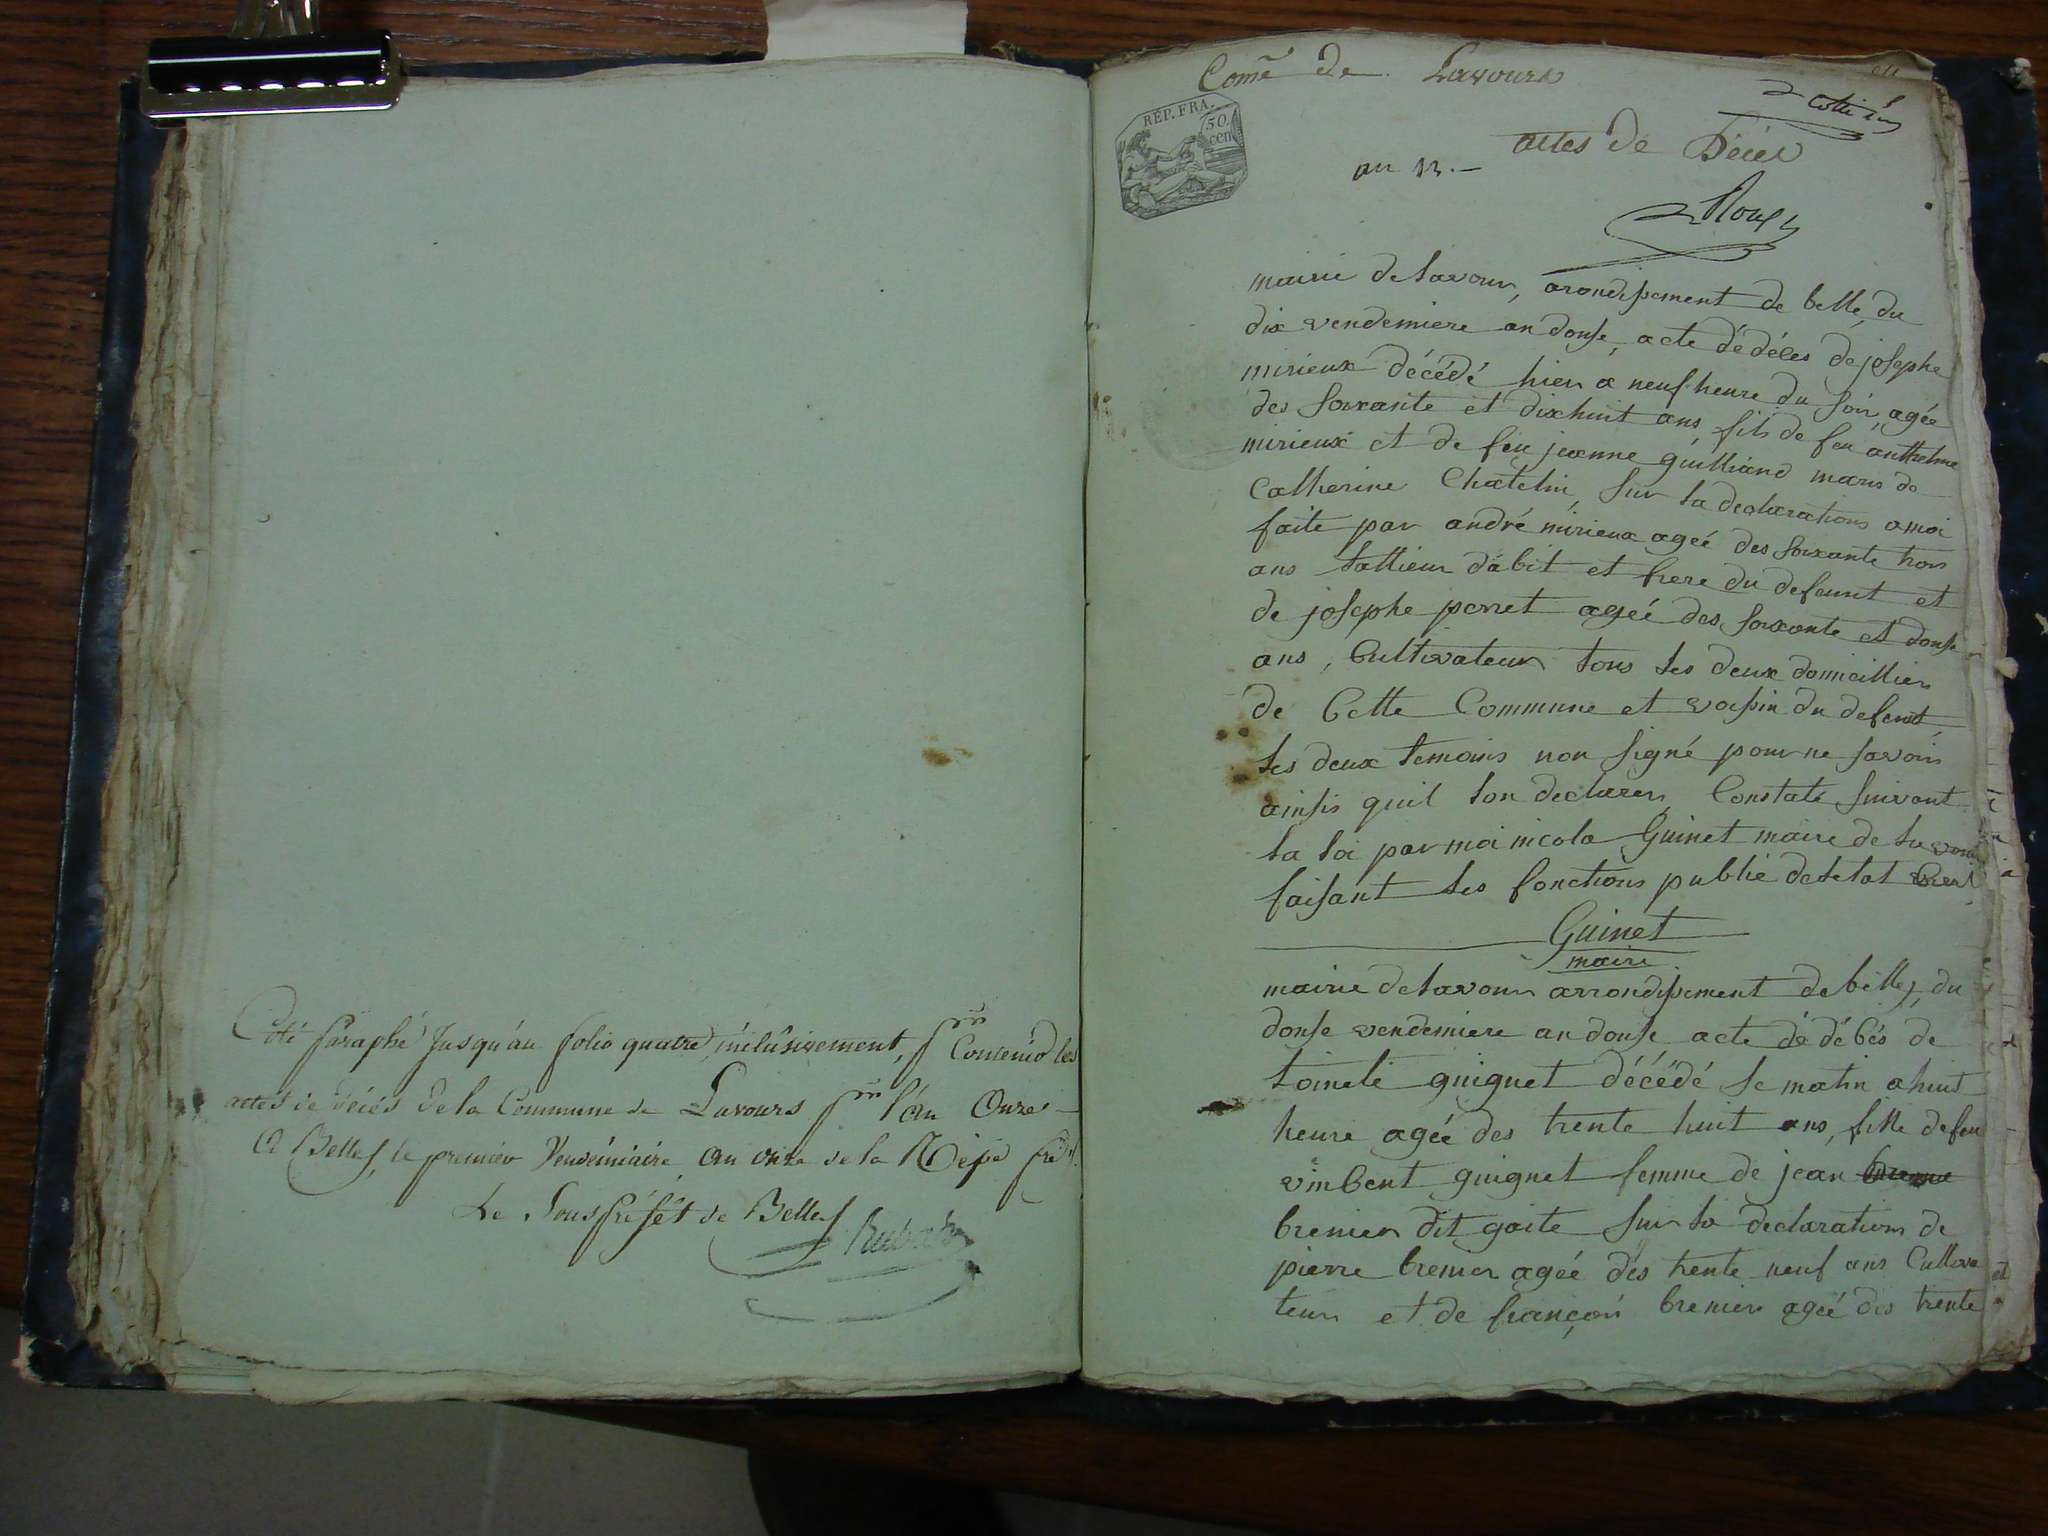 Coté paraphé Jusqu'au folio quatre inclusivement, pr Contenir les
actes de décés de la Commune de Lavours pr l'an Onze
A Belley, le premier Vendémiaire an onze de la Rép. fr.
Le Sous préfét de Belley
Come de Lavours
Cotté
REP. FRA.
50.
cen
actes de Décés
an 12.
Roux
mairie de lavour, arondissement de belle, du
dix vendemiere an douse, acte dédéces de josephe
mirieux décédé hier a neuf heure du soir, agée
des soixante et dixhuit ans, fils de feu anthelme
mirieux et de feu jeanne guilliand maris de
Catherine Chatelin, sur la declarations a moi
faite par andré mirieux agée des soixante trois
ans tallieur d'abit et frere du defeunt et
de josephe perret agée des soixante et douse
ans, Cultivateur tous les deux domicillier
de Cette Commune et vossin du defeunt
les deux temoins non signé pour ne savoir
ainsis quil lon declarer, Constaté suivant
la loi par moi nicola Guinet maire de lavour
faisant les fonctions publié detelat Civel
Guinet
maire
mairie delavour arrondissement de belley, du
douse vendemiere an douse acte dé débés de
toineté guiguet décédé le matin a huit
heure agée des trente huit ans, fille defeu
vinbent guiguet femme de jean
brenier dit gaite sur la declaration de
pierre brenier agée des trente neuf ans Cultiva
teur et de françon brenier agée des trente